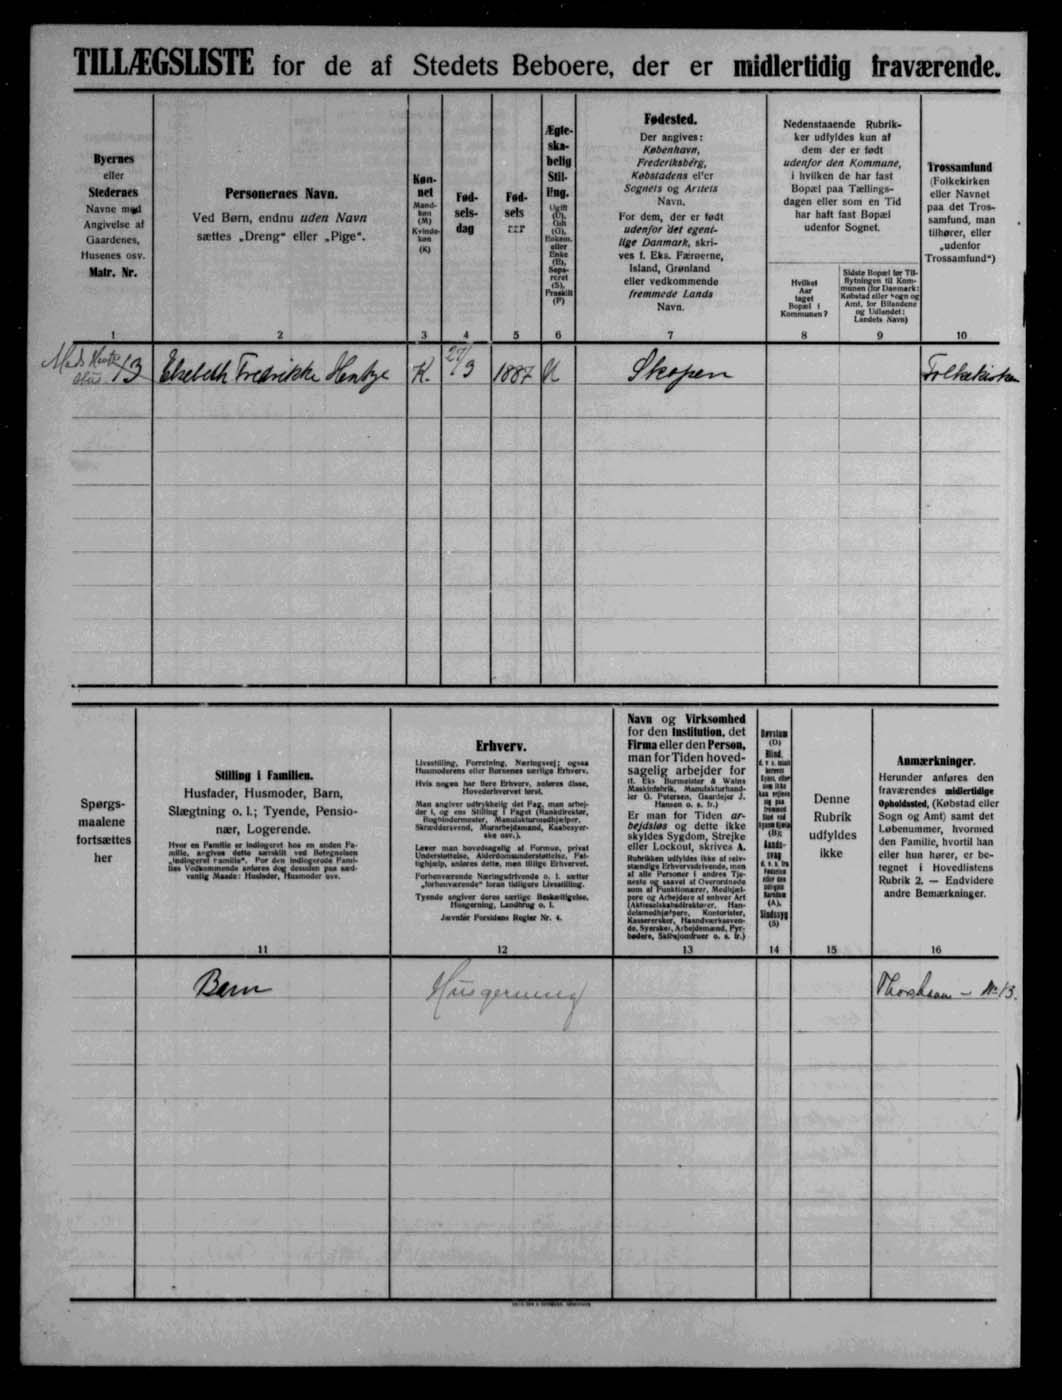 TILLÆGSLISTE for de af Stedets Beboere, der er midlertidig fraværende.
Byernes
eller
Stedernes
Navne med
Angivelse af
Gaardenes,
Husenes osv.
Matr. Nr.
1
Personernes Navn.
Ved Børn, endnu uden Navn
sættes „Dreng“ eller „Pige“.
2
Køn-
net
Mand-
køn
(M)
Kvinde-
køn
(K)
3
Fød-
sels-
dag
4
Fød-
sels
5
Ægte-
ska-
belig
Stil-
ling.
Ugift
(U),
Gift
(G),
Enkem.
eller
Enke
(E),
Sepa-
reret
(S),
Fraskilt
(F)
6
Fødested.
Der angives:
København,
Frederiksberg,
Købstadens eller
Sognets og Amtets
Navn.
For dem, der er født
udenfor det egent-
lige Danmark, skri-
ves f. Eks. Færøerne,
Island, Grønland
eller vedkommende
fremmede Lands
Navn.
7
Nedenstaaende Rubrik-
ker udfyldes kun af
dem der er født
udenfor den Kommune,
i hvilken de har fast
Bopæl paa Tællings-
dagen eller som en Tid
har haft fast Bopæl
udenfor Sognet.
Hvilket
Aar
taget
Bopæl i
Kommunen?
8
Sidste Bopæl før Til-
flytningen til Kom-
munen (for Danmark:
Købstad eller Sogn og
Amt, for Bilandene
og Udlandet:
Landets Navn)
9
Trossamfund
(Folkekirken
eller Navnet
paa det Tros-
samfund, man
tilhører, eller
„udenfor
Trossamfund“)
10
Mads 13 Elsebeth Fredrikke K. 27/3 1887 U Skopen Folkekirken
Spørgs-
maalene
fortsættes
her
Stilling i Familien.
Husfader, Husmoder, Barn,
Slægtning o. l.; Tyende, Pensio-
nær, Logerende.
Hvor en Familie er indlogeret hos en anden Fa-
milie, angives dette særskilt ved Betegnelsen
„indlogeret Familie“. For den indlogerede Fami-
lies Vedkommende anføres dog desuden paa sæd-
vanlig Maade: Husfader, Husmoder osv.
11
Erhverv.
Livsstilling, Forretning, Næringsvej; ogsaa
Husmoderens eller Børnenes særlige Erhverv.
Hvis nogen har flere Erhverv, anføres disse,
Hovederhvervet først.
Man angiver udtrykkelig det Fag, man arbej-
der i, og ens Stilling i Faget (Bankdirektør,
Bogbindermester, Manufakturmedhjælper,
Skræddersvend, Murarbejdsmand, Kaabesyer-
ske osv.).
Lever man hovedsagelig af Formue, privat
Understøttelse, Alderdomsunderstøttelse, Fat-
tighjælp, anføres dette, men tillige Erhvervet.
Forhenværende Næringsdrivende o. l. sætter
„forhenværende“ foran tidligere Livsstilling.
Tyende angiver deres særlige Beskæftigelse,
Husgerning, Landbrug o. l.
Jævnfør Forsidens Regler Nr. 4.
12
Navn og Virksomhed
for den Institution, det
Firma eller den Person,
man for Tiden hoved-
sagelig arbejder for
(f. Eks Burmeister & Wains
Maskinfabrik, Manufakturhand-
ler G. Petersen, Gaardejer J.
Hansen o. s. fr.)
Er man for Tiden ar-
bejdsløs og dette ikke
skyldes Sygdom, Strejke
eller Lockout, skrives A.
Rubrikken udfyldes ikke af selv-
stændige Erhvervsdrivende, men
af alle Personer i andres Tje-
neste og saavel af Overordnede
som af Funktionærer, Medhjæl-
pere og Arbejdere af enhver Art
(Aktieselskabsdirektører, Han-
delsmedhjælpere, Kontorister,
Kasserersker, Haandværkssven-
de, Syersker, Arbejdsmænd, Fyr-
bødere, Skibsjomfruer o. s. fr.)
13
Døvstum
(D)
Blind,
(B);
Aands-
svag
(A),
Sindssyg
(S)
14
Denne
Rubrik
udfyldes
ikke
15
Anmærkninger.
Herunder anføres den
fraværendes midlertidige
Opholdssted, (Købstad eller
Sogn og Amt) samt det
Løbenummer, hvormed
den Familie, hvortil han
eller hun hører, er be-
tegnet i Hovedlistens
Rubrik 2. — Endvidere
andre Bemærkninger.
16
Barn Husgerning Thorshavn – Nr. 13.